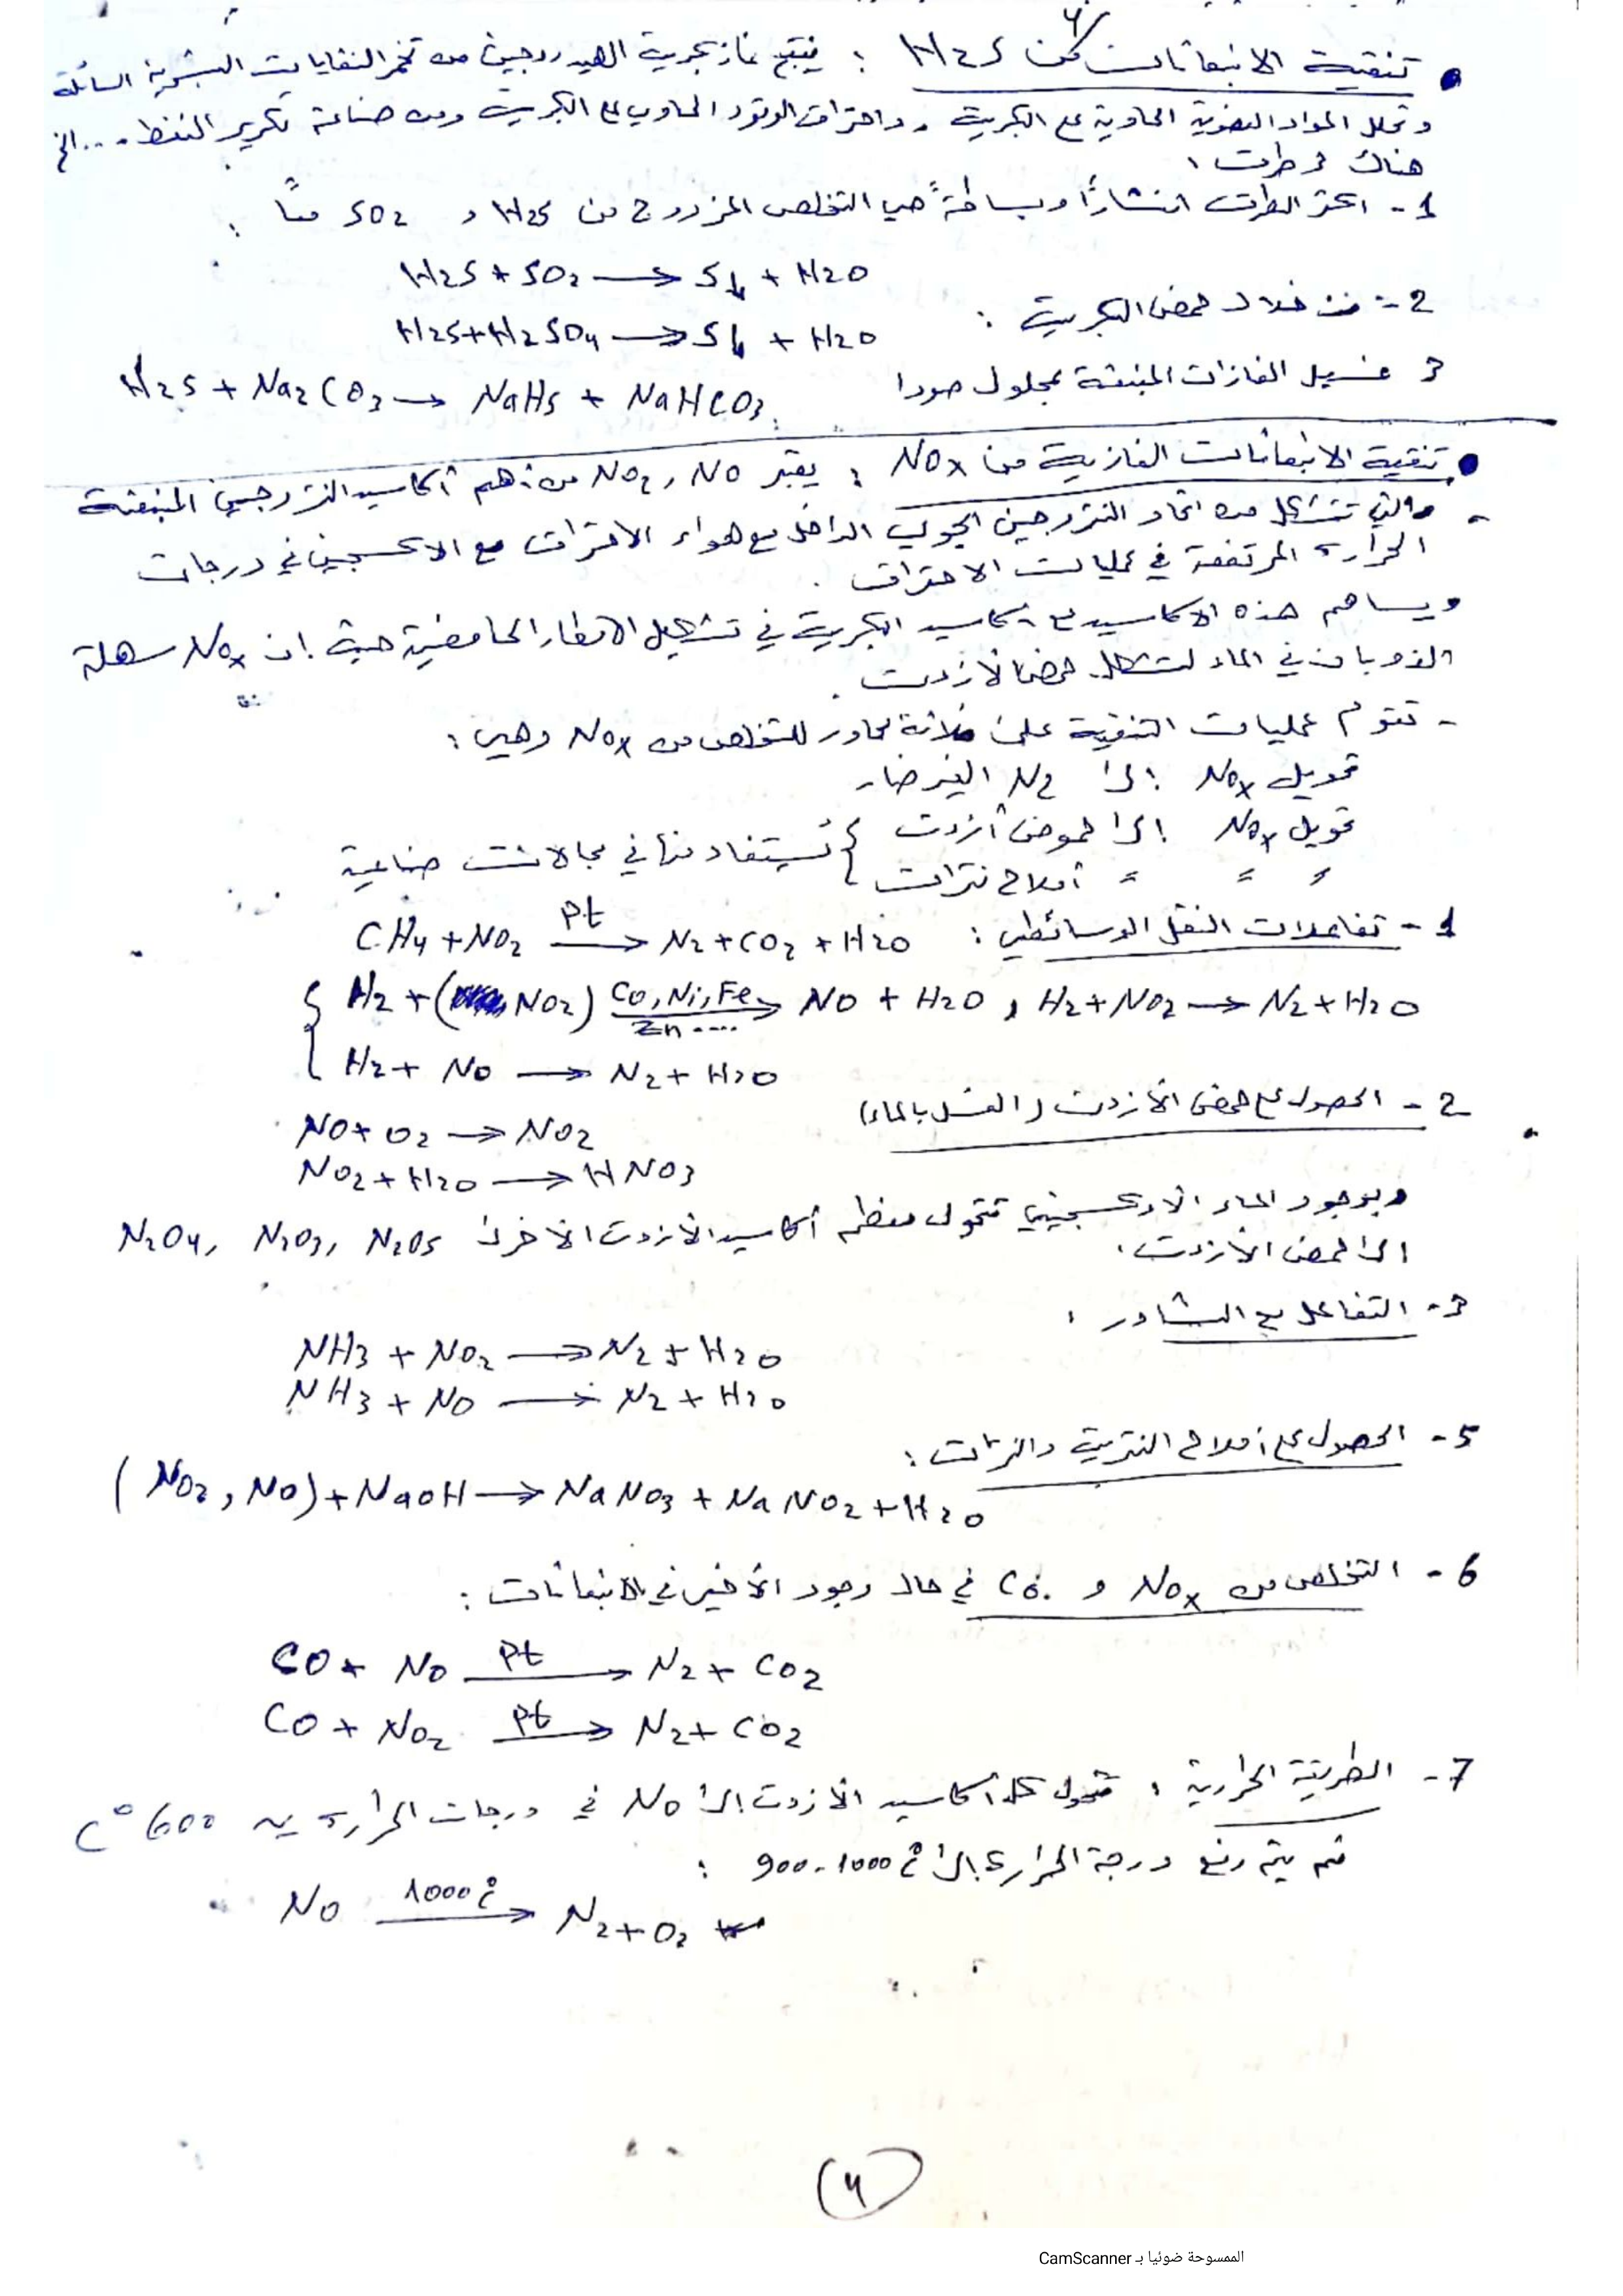 4/
• تنقية الانبعاثات من H2S : ينتج غاز كبريت الهيدروجين من تخمر النفايات البشرية السائلة
وتحلل المواد العضوية الحاوية على الكبريت . واحتراق الوقود الحاوي على الكبريت ومن صناعة تكرير النفط ....الخ
هناك 3 طرق :
1 - اكثر الطرق انتشاراً وبساطةً هي التخلص المزدوج من H2S و SO2 معاً :
H2S + SO2 → S↓ + H2O
2 - من خلال حمض الكبريت :
H2S + H2SO4 → S↓ + H2O
3 غسيل الغازات المنبعثة بمحلول صودا
H2S + Na2CO3 → NaHS + NaHCO3
• تنقية الانبعاثات الغازية من NOx : يعتبر NO2 , NO من أهم أكاسيد النتروجين المنبعثة
- والتي تتشكل من اتحاد النتروجين الجوي الداخل مع هواء الاحتراق مع الاكسجين في درجات
الحرارة المرتفعة في عمليات الاحتراق .
ويساهم هذه الاكاسيد مع أكاسيد الكبريت في تشكيل الامطار الحامضية حيث ان NOx سهلة
الذوبان في الماء لتشكل حمض الآزوت .
- تقوم عمليات التنقية على ثلاثة محاور للتخلص من NOx وهي :
تحويل NOx إلى N2 الغير ضار
تحويل NOx إلى حموض آزوت } يُستفاد منها في مجالات صناعية
〃 〃 〃 أملاح نترات
1 - تفاعلات النقل الوسائطي :
CH4 + NO2 —Pt→ N2 + CO2 + H2O
{ H2 + ( NO2) —Co, Ni, Fe, Zn ....→ NO + H2O , H2 + NO2 → N2 + H2O
H2 + NO → N2 + H2O
2 - الحصول على حمض الآزوت ( الغسل بالماء)
NO + O2 → NO2
NO2 + H2O → HNO3
وبوجود الماء الاوكسجيني تتحول معظم أكاسيد الآزوت الأخرى N2O4, N2O3, N2O5
الى حمض الآزوت .
3 - التفاعل مع النشادر :
NH3 + NO2 → N2 + H2O
NH3 + NO → N2 + H2O
5 - الحصول على أملاح النتريت والنترات :
(NO2, NO) + NaOH → NaNO3 + NaNO2 + H2O
6 - التخلص من NOx و CO في حال وجود الأخير في الانبعاثات :
CO + NO —Pt→ N2 + CO2
CO + NO2 —Pt→ N2 + CO2
7 - الطريقة الحرارية : تتحول كل أكاسيد الآزوت إلى NO في درجات الحرارة 600 °C
ثم يتم رفع درجة الحرارة إلى 900-1000 °C :
NO —1000 °C→ N2 + O2
(4)
الممسوحة ضوئيا بـ CamScanner